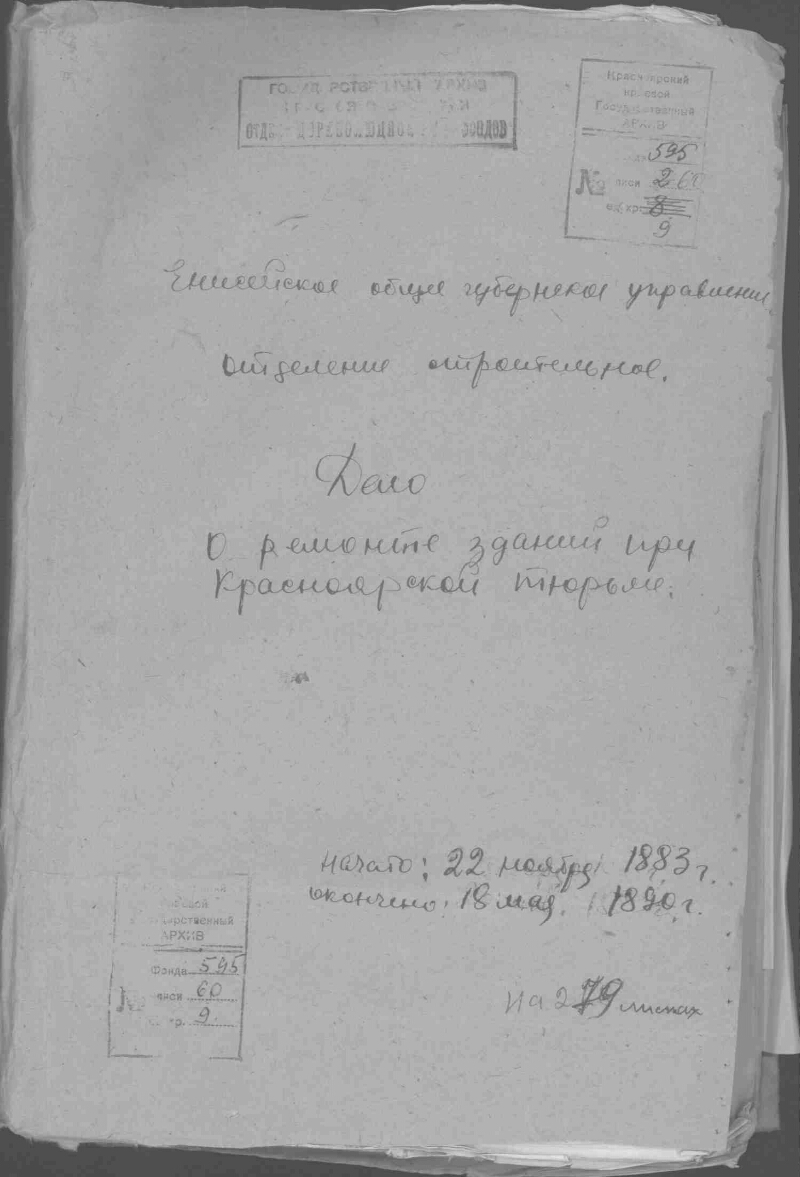 ГОСУДАРСТВЕННЫЙ АРХИВ
ОТДЕЛ ДОРЕВОЛЮЦИОННЫХ ФОНДОВ
Красноярский
краевой
Государственный
АРХИВ
595
№ описи 2 60
ед. хр. 8
9
Енисейское общее губернское управление.
Отделение строительное.
Дело
О ремонте зданий при
Красноярской тюрьме.
Начато: 22 ноября 1883 г.
окончено: 18 мая 1890 г.
На 279 листах
краевой
Государственный
АРХИВ
Фонда 595
№ описи 60
ед. хр. 9